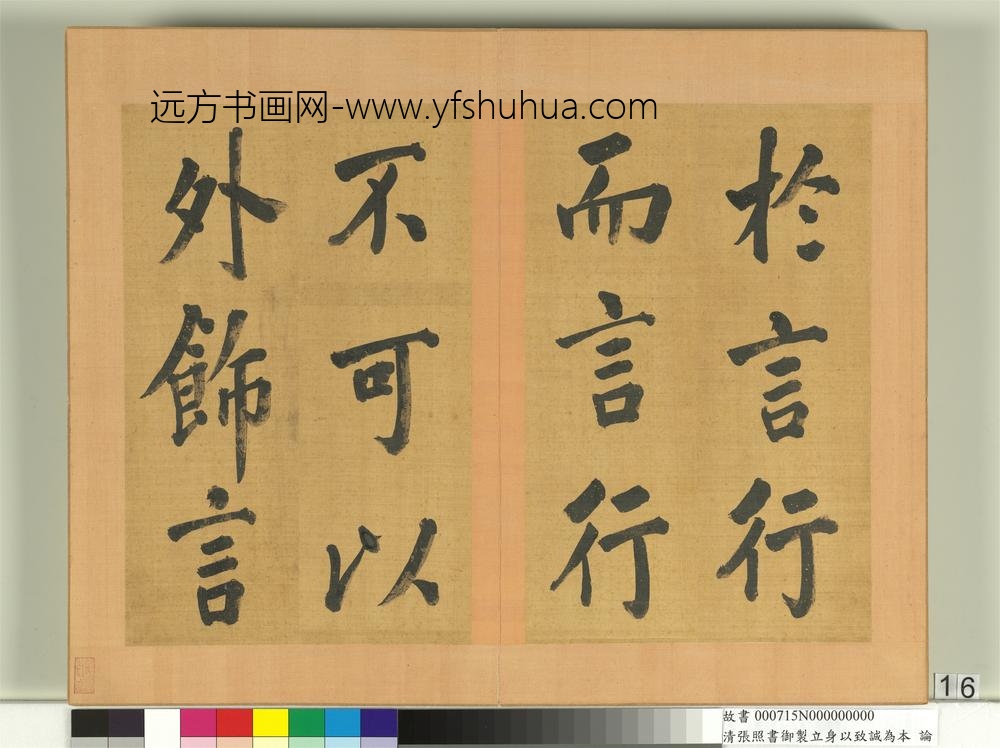 远方书画网-www.yfshuhua.com
於言行
而言行
不可以
外飾言
16
故書 000715N000000000
清張照書御製立身以致誠為本 論